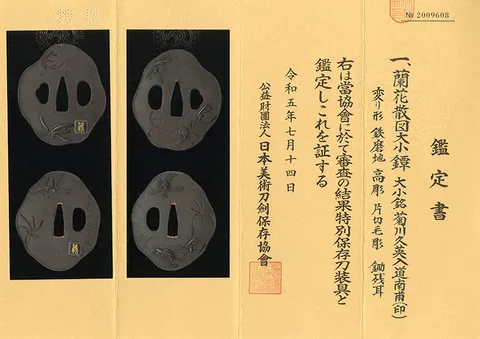 № 2009608
鑑定書
一、蘭花散図大小鐔 大小銘 菊川久英入道南甫(印)
変り形 鉄磨地 高彫 片切毛彫 鋤残耳
右は當協會に於て審査の結果特別保存刀装具と
鑑定しこれを証する
令和五年七月十四日
公益財團法人 日本美術刀劍保存協會